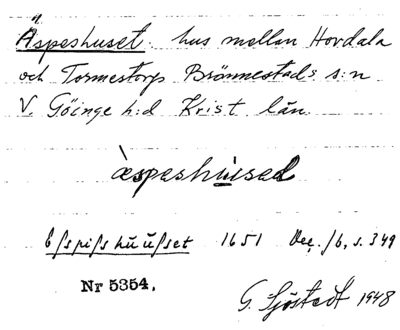 Äspeshuset. hus mellan Hovdala
och Tormestorp Brönnestads s:n
V. Göinge h:d Krist län
àspeshùsed
1651 Dec. /6, s. 349
Nr 5354.
G. Sjöstedt 1948